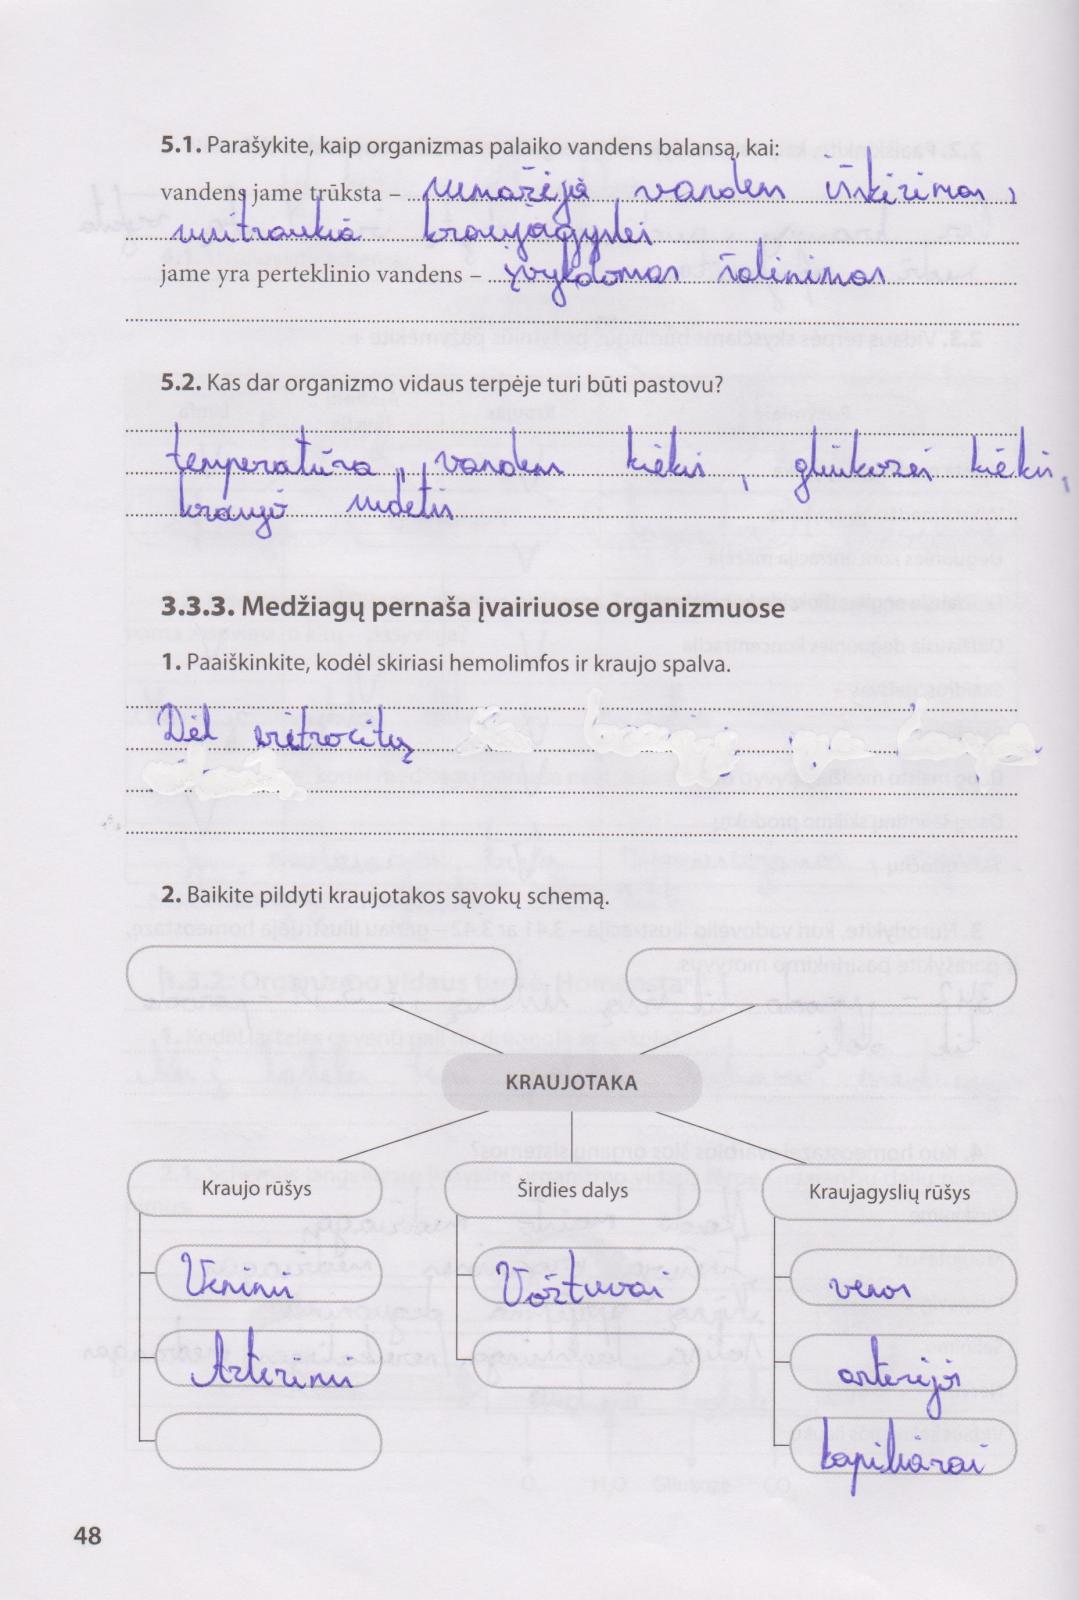 5.1. Parašykite, kaip organizmas palaiko vandens balansą, kai:
vandens jame trūksta – sumažėja vandens išskirimas,
susitraukia kraujagyslės
jame yra perteklinio vandens – įvykdomas šalinimas
5.2. Kas dar organizmo vidaus terpėje turi būti pastovu?
temperatūra, vandens kiekis, gliukozės kiekis,
kraujo sudėtis
3.3.3. Medžiagų pernaša įvairiuose organizmuose
1. Paaiškinkite, kodėl skiriasi hemolimfos ir kraujo spalva.
Dėl eritrocitų
2. Baikite pildyti kraujotakos sąvokų schemą.
KRAUJOTAKA
Kraujo rūšys Širdies dalys Kraujagyslių rūšys
Veninis Vožtuvai venos
Arterinis arterijos
kapiliarai
48